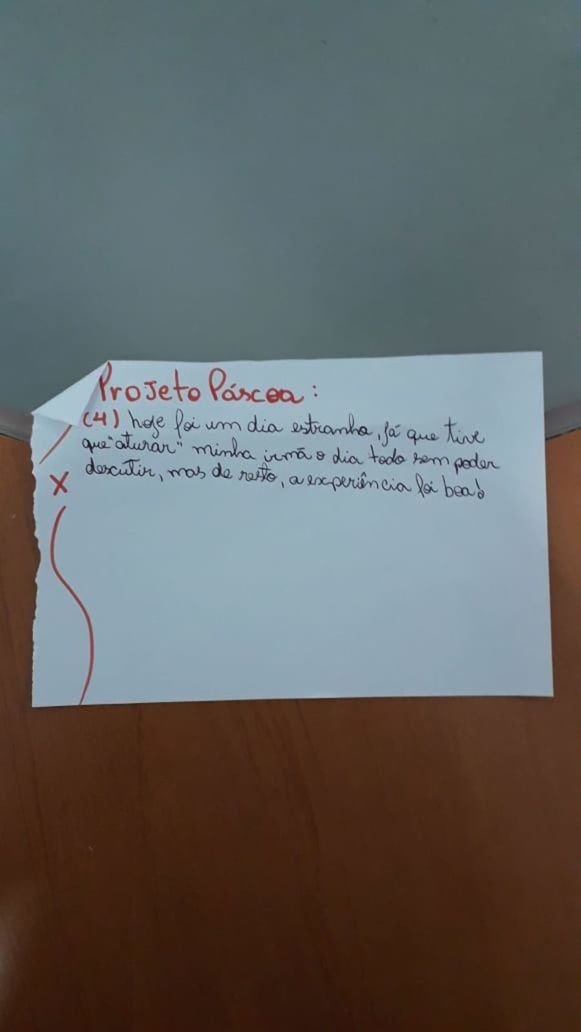 Projeto Páscoa:
(4) hoje foi um dia estranho, já que tive
que "aturar" minha irmã o dia todo sem poder
descutir, mas de resto, a experiência foi boa!
X